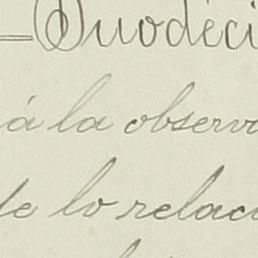 Duodéci
á la observa
de lo relaci